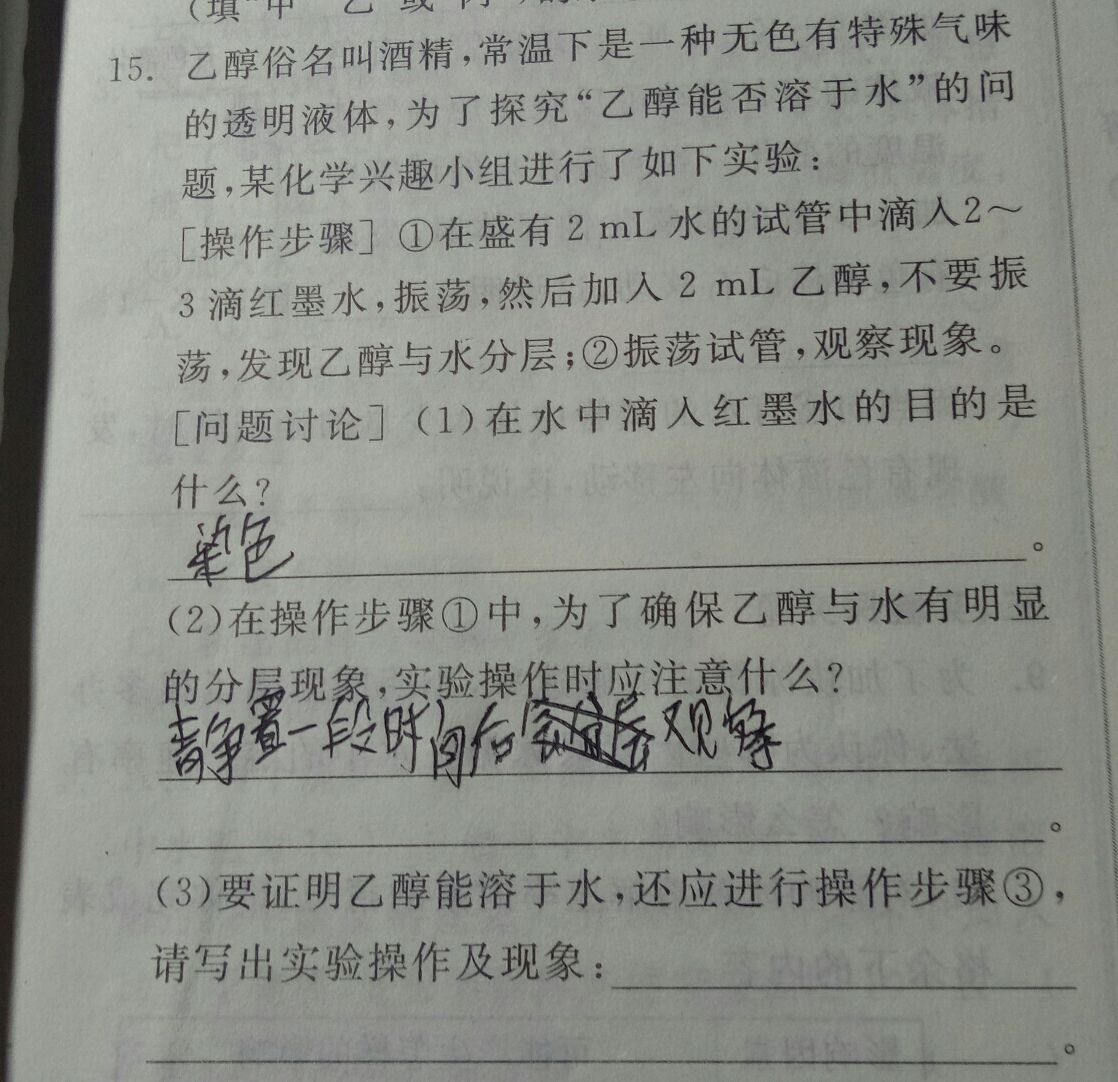 (填“甲”“乙”或“丙”)的
15. 乙醇俗名叫酒精,常温下是一种无色有特殊气味
的透明液体,为了探究“乙醇能否溶于水”的问
题,某化学兴趣小组进行了如下实验:
[操作步骤] ①在盛有 2 mL 水的试管中滴入2～
3 滴红墨水,振荡,然后加入 2 mL 乙醇,不要振
荡,发现乙醇与水分层;②振荡试管,观察现象。
[问题讨论] (1)在水中滴入红墨水的目的是
什么?
染色 。
(2)在操作步骤①中,为了确保乙醇与水有明显
的分层现象,实验操作时应注意什么?
静置一段时间后 观察
。
(3)要证明乙醇能溶于水,还应进行操作步骤③,
请写出实验操作及现象:
。